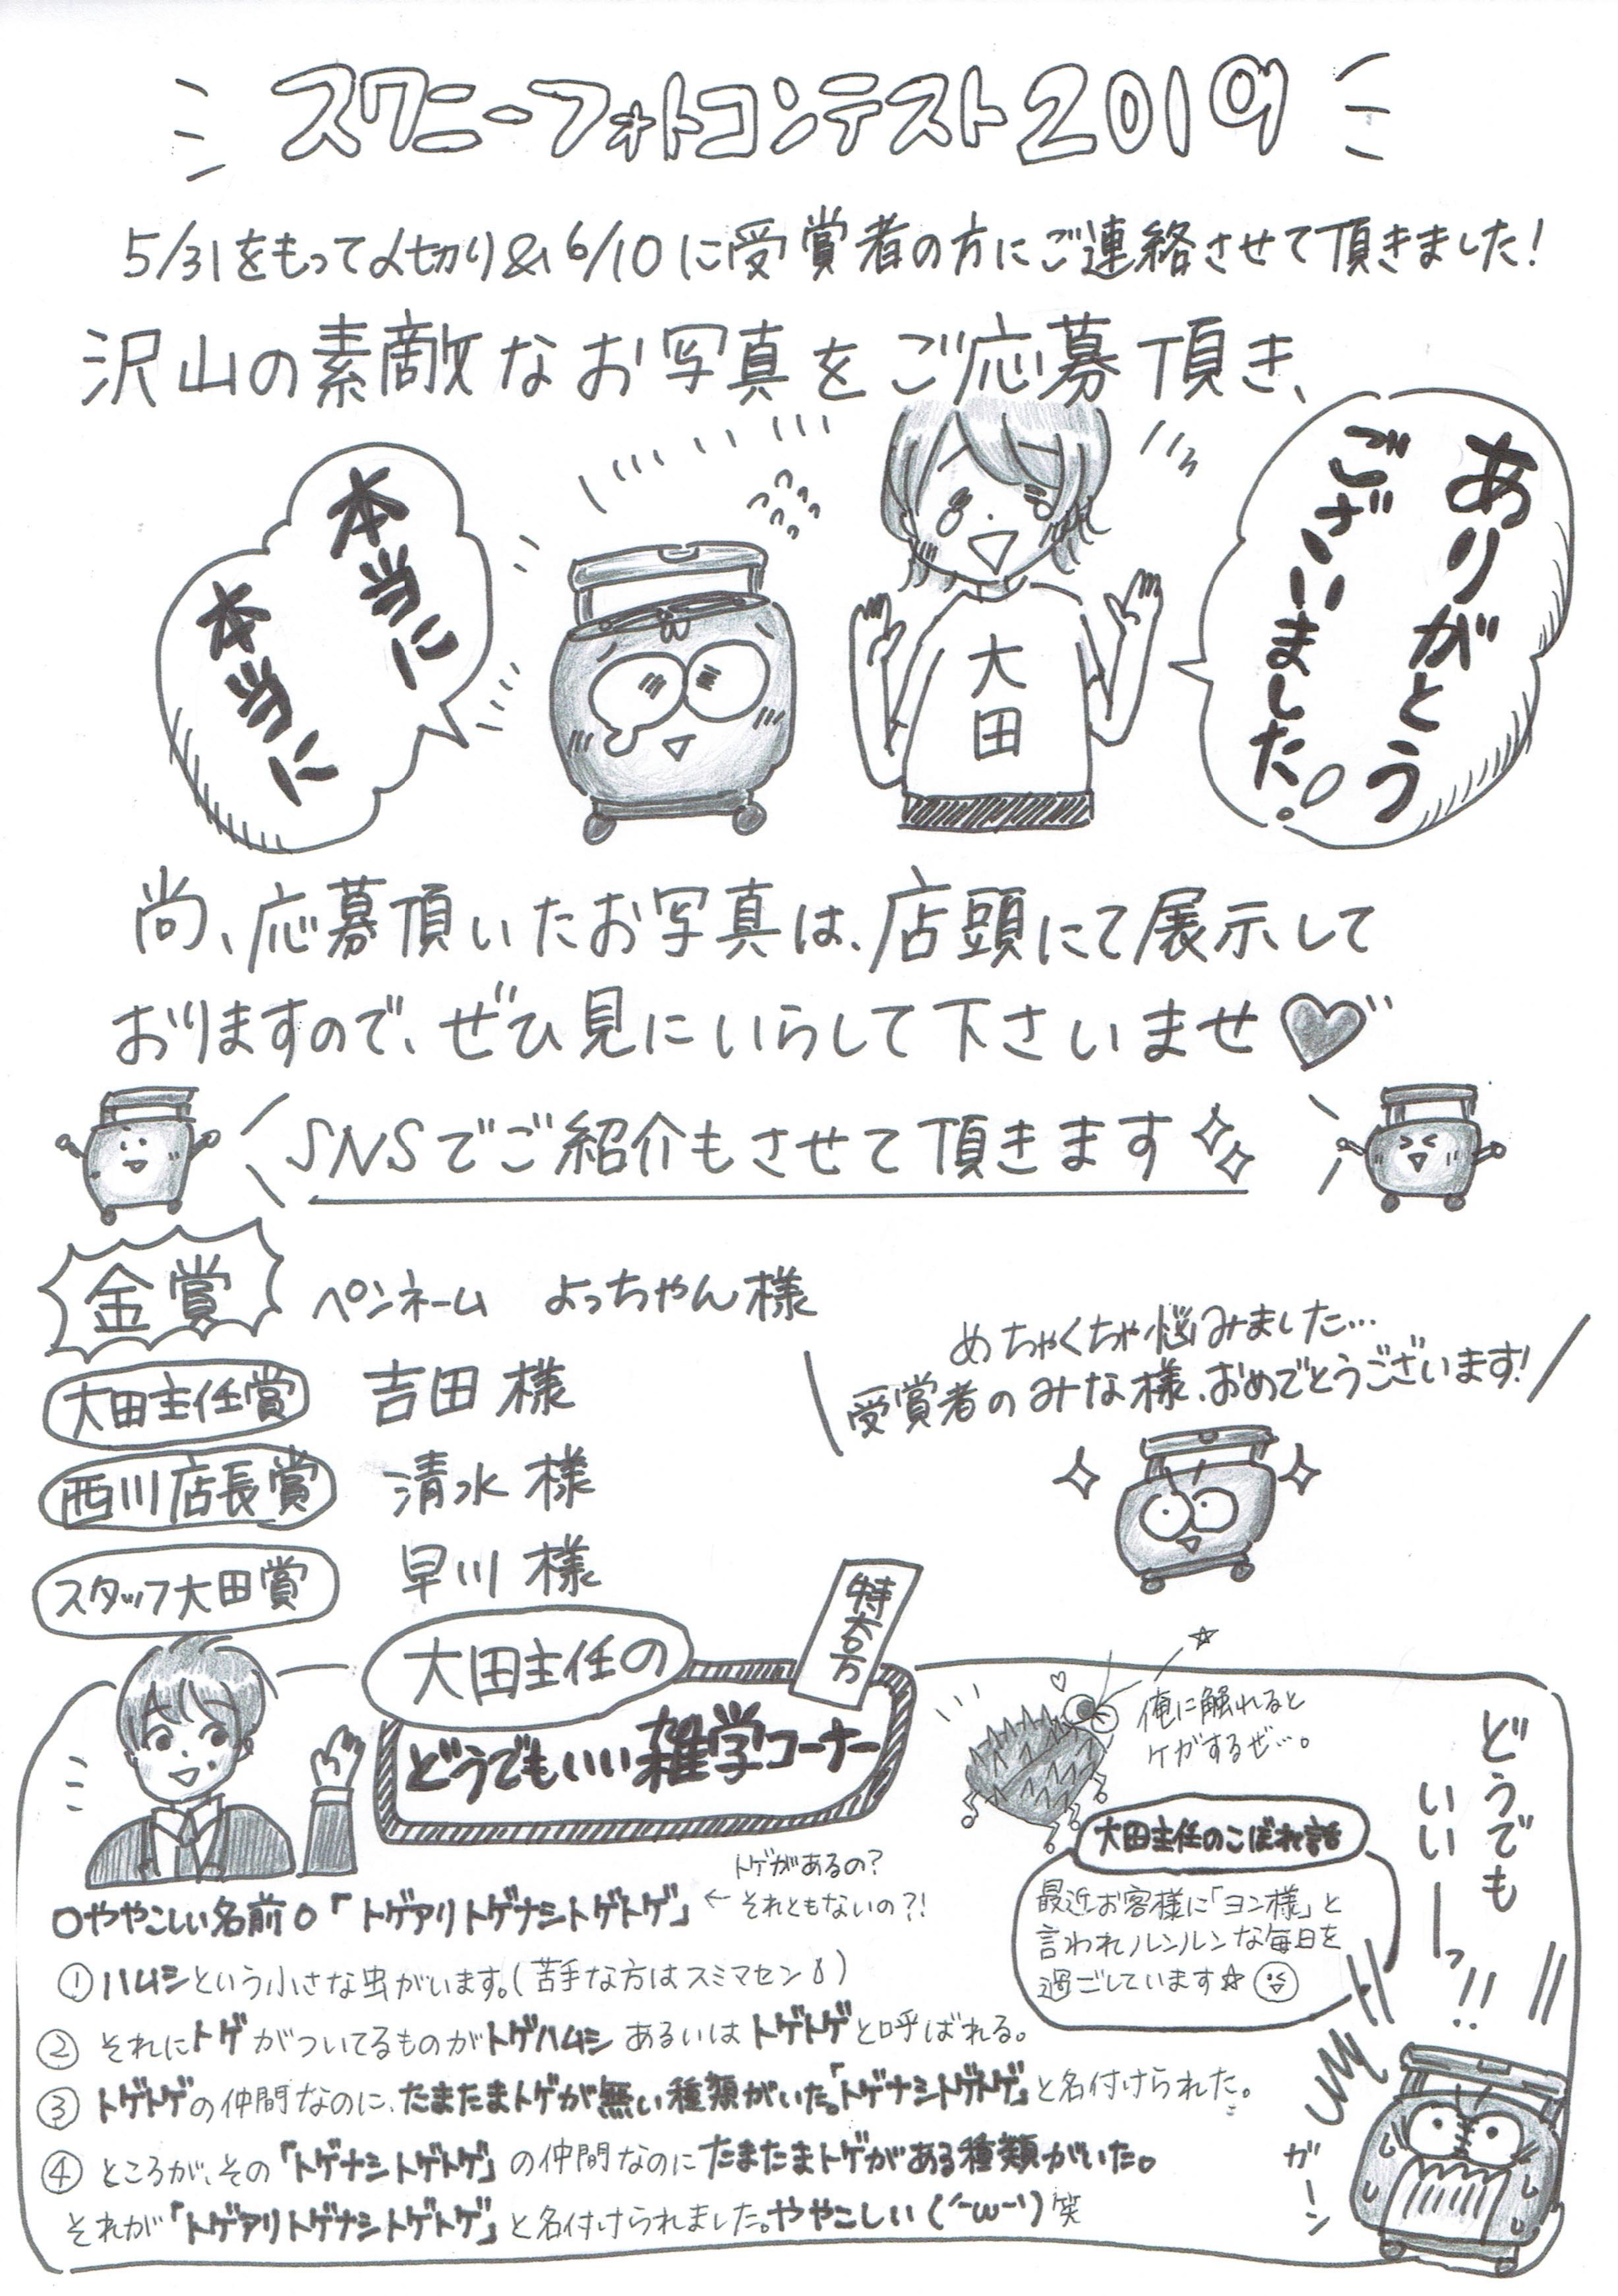 スワニーフォトコンテスト2019
5/31をもって〆切り&6/10に受賞者の方にご連絡させて頂きました!
沢山の素敵なお写真をご応募頂き、
本当に
本当に
大田
ありがとう
ございました!
尚、応募頂いたお写真は、店頭にて展示して
おりますので、ぜひ見にいらして下さいませ♥
SNSでご紹介もさせて頂きます
金賞 ペンネーム よっちゃん様
大田主任賞 吉田様
西川店長賞 清水様
スタッフ大田賞 早川様
めちゃくちゃ悩みました…
受賞者のみな様、おめでとうございます!
特大号
大田主任の
どうでもいい雑学コーナー
俺に触れると
ケガするぜ…。
どうでも
いいーっ!!
大田主任のこぼれ話
最近お客様に「ヨン様」と
言われルンルンな毎日を
過ごしています☆
○ややこしい名前○「トゲアリトゲナシトゲトゲ」←
トゲがあるの?
それともないの?!
①ハムシという小さな虫がいます。(苦手な方はスミマセン!)
②それにトゲがついてるものがトゲハムシあるいはトゲトゲと呼ばれる。
③トゲトゲの仲間なのに、たまたまトゲが無い種類がいた。「トゲナシトゲトゲ」と名付けられた。
④ところが、その「トゲナシトゲトゲ」の仲間なのにたまたまトゲがある種類がいた。
それが「トゲアリトゲナシトゲトゲ」と名付けられました。ややこしい(´-ω-`)笑
ガーン